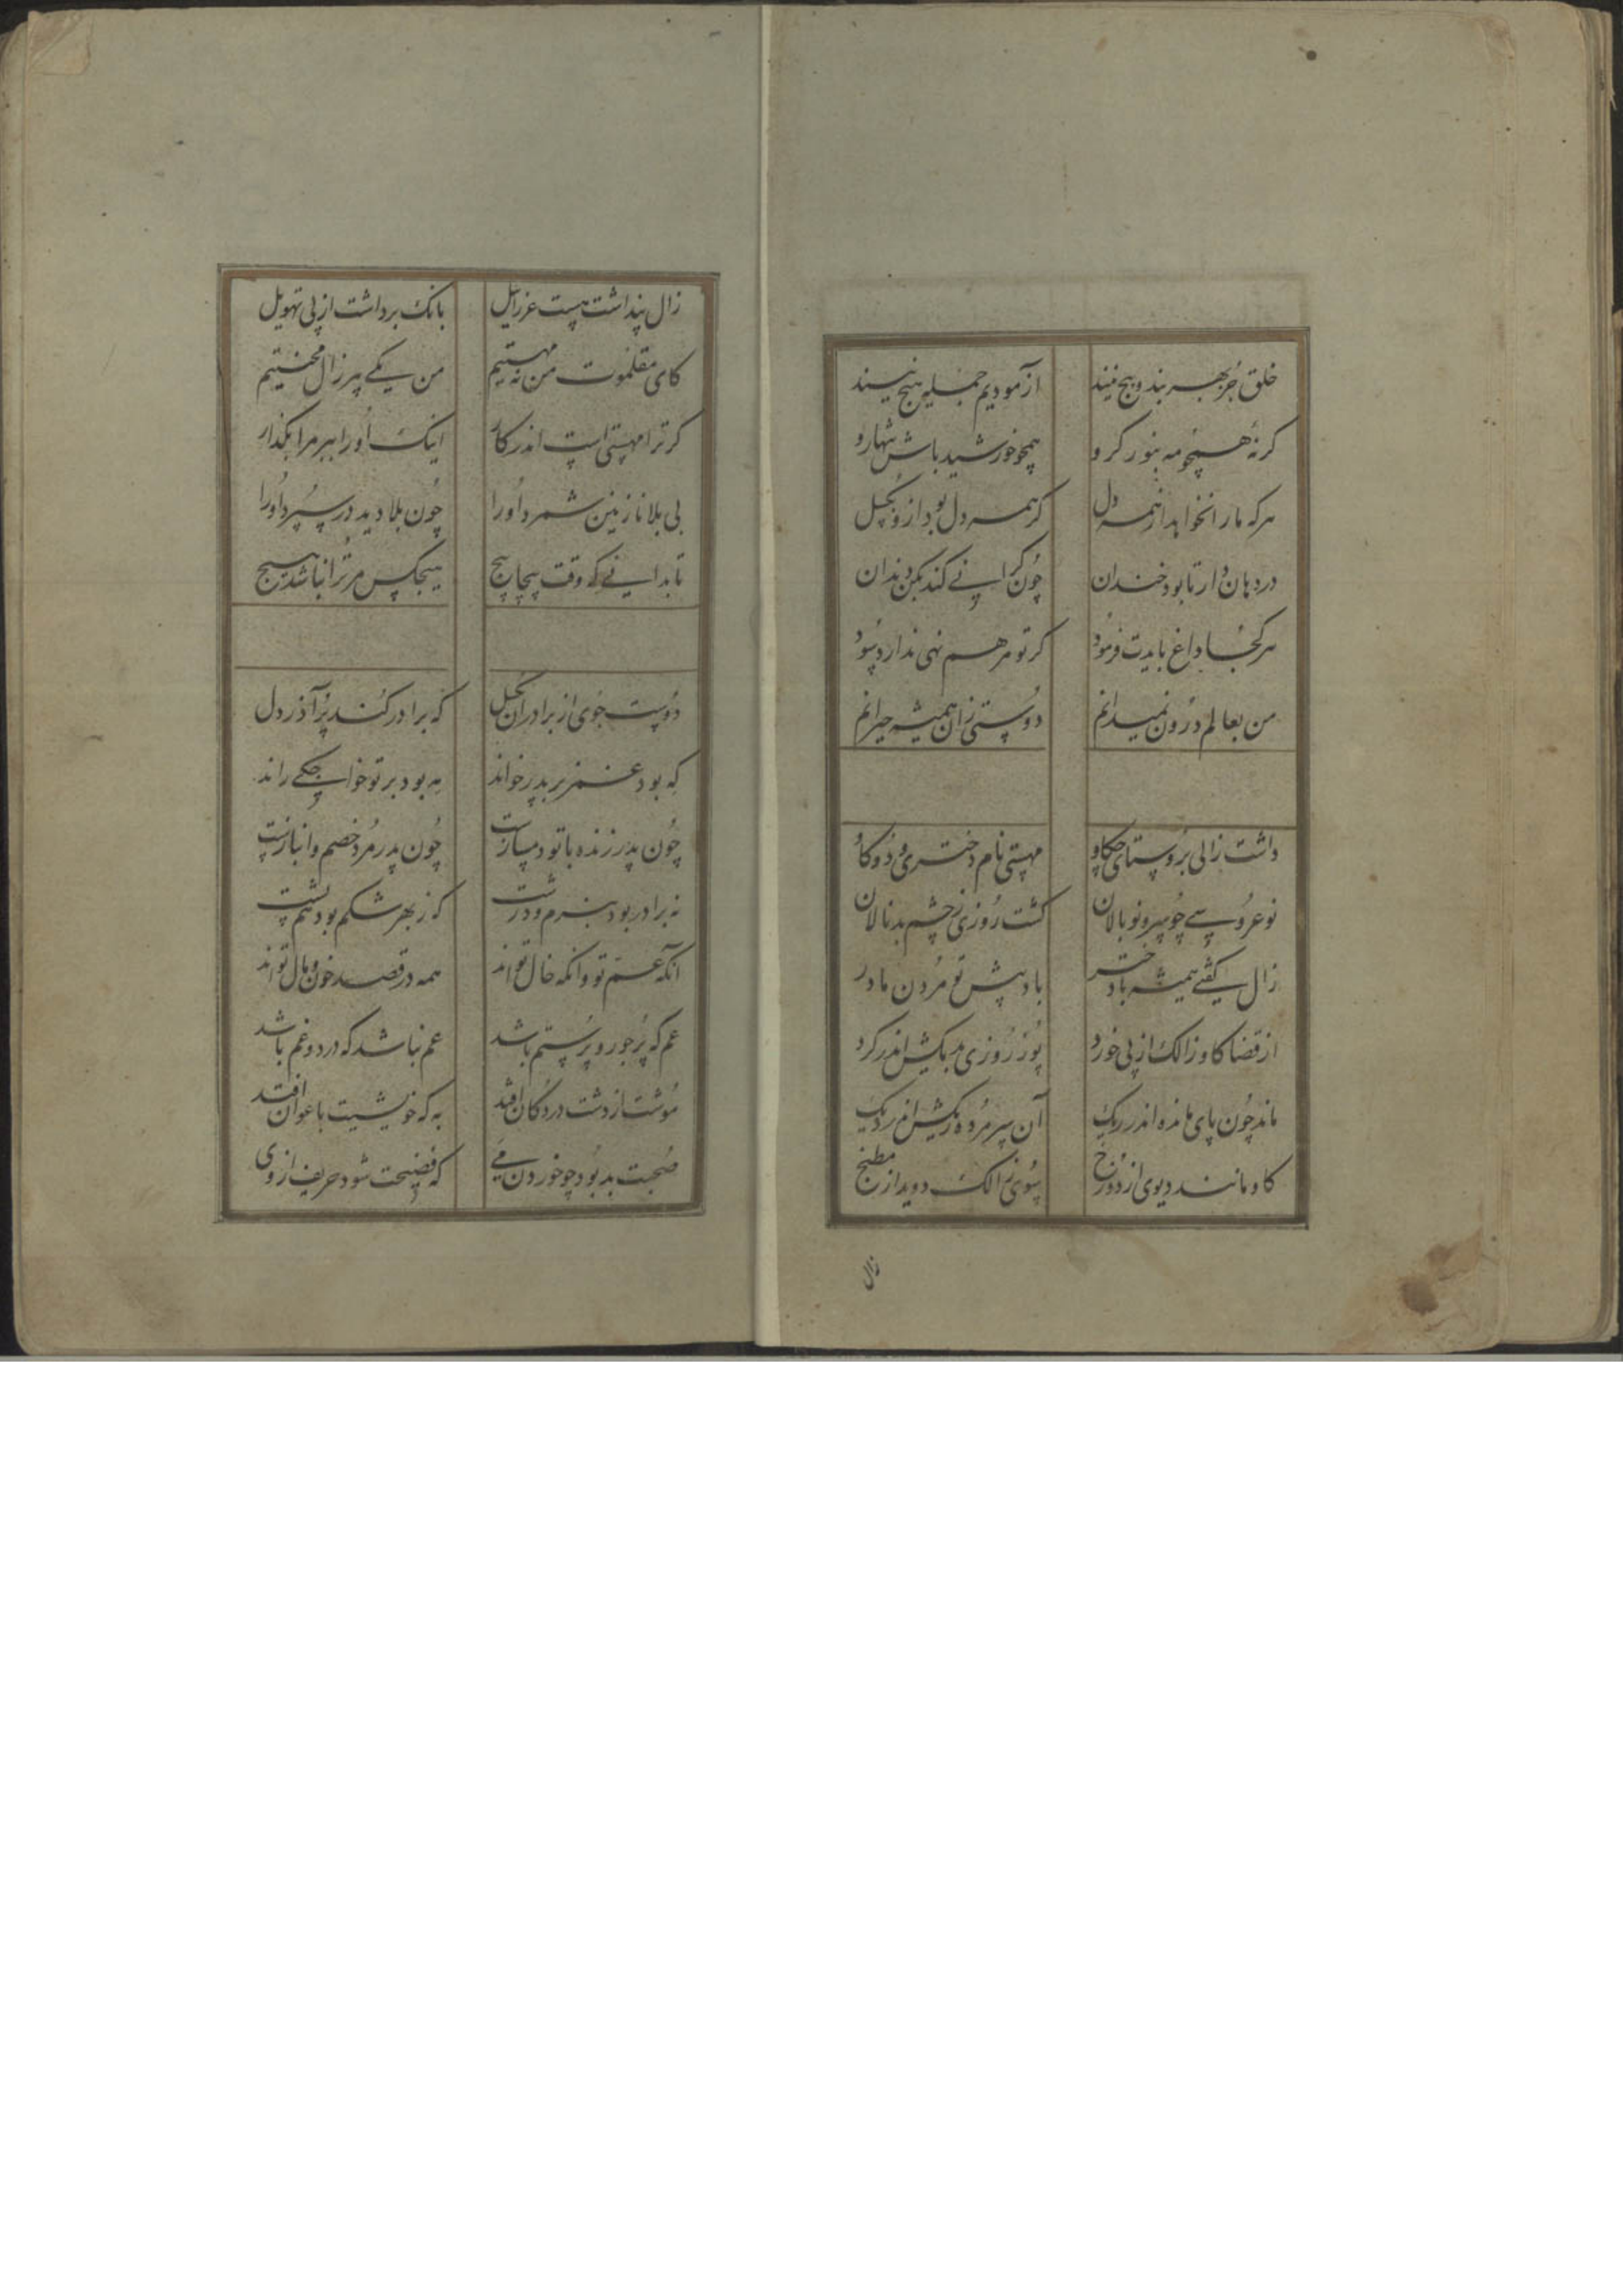 خلق جز بهر بند و پیچ نیند ازمودیم جمله هیچ نیند
کر نهٔ همچو مه بنور کرو همچو خورشید باش تنهارو
هرکه مارا نخواهد از همه دل کر همه دل بود ازو بکسل
در دهان دار تا بود خندان چون کرانی کند بکن دندان
هر کجا داغ بایدت فرمود کر تو مرهم نهی ندارد سود
من بعالم درون نمیدانم دوستی زان همیشه حیرانم
داشت زالی بروستای چکاو مهستی نام دختری و دو کاو
نو عروسی چو سرو نو بالان کشت روزی ز چشم بد نالان
زال کفتی همیشه با دختر باد پیش تو مردن مادر
از قضا کاو زالک از پی خورد پوز روزی بدیکش اندر کرد
ماند چون پای مانده اندر ریک آن سر مرده ریکش اندر دیک
کاو مانند دیوی از دوزخ سوی زالک دوید از مطبخ
زال
زال پنداشت هست عزرایل بانک برداشت از پی تهویل
کای مقلموت من نه مهستیم من یکی پیر زال محنتیم
کر ترا مهستی است اندر کار اینک اورا ببر مرا بکذار
بی بلا نازنین شمرد اورا چون بلا دید در سپرد اورا
تا بدانی که وقت پیچاپیچ هیچکس مر ترا نباشد هیچ
دوست جوی از برادران بکسل که برادر کند پر آذر دل
که بود عم بر پدر خواند به بود بر تو خواجکی راند
چون پدر زنده با تو دمسازست چون پدر مرد خصم و انبازست
نه برادر بود بنرم و درشت کز بهر شکم بود هم پشت
آنکه عم تو وانکه خال تو اند همه در قصد خون و مال تو اند
عم که پر جور و پر ستم باشد عم نباشد که درد و غم باشد
موشت از دشت در دکان افتد به که خویشیت با عوان افتد
صحبت بد بود چو خوردن می که فضیحت شود حریف از وی